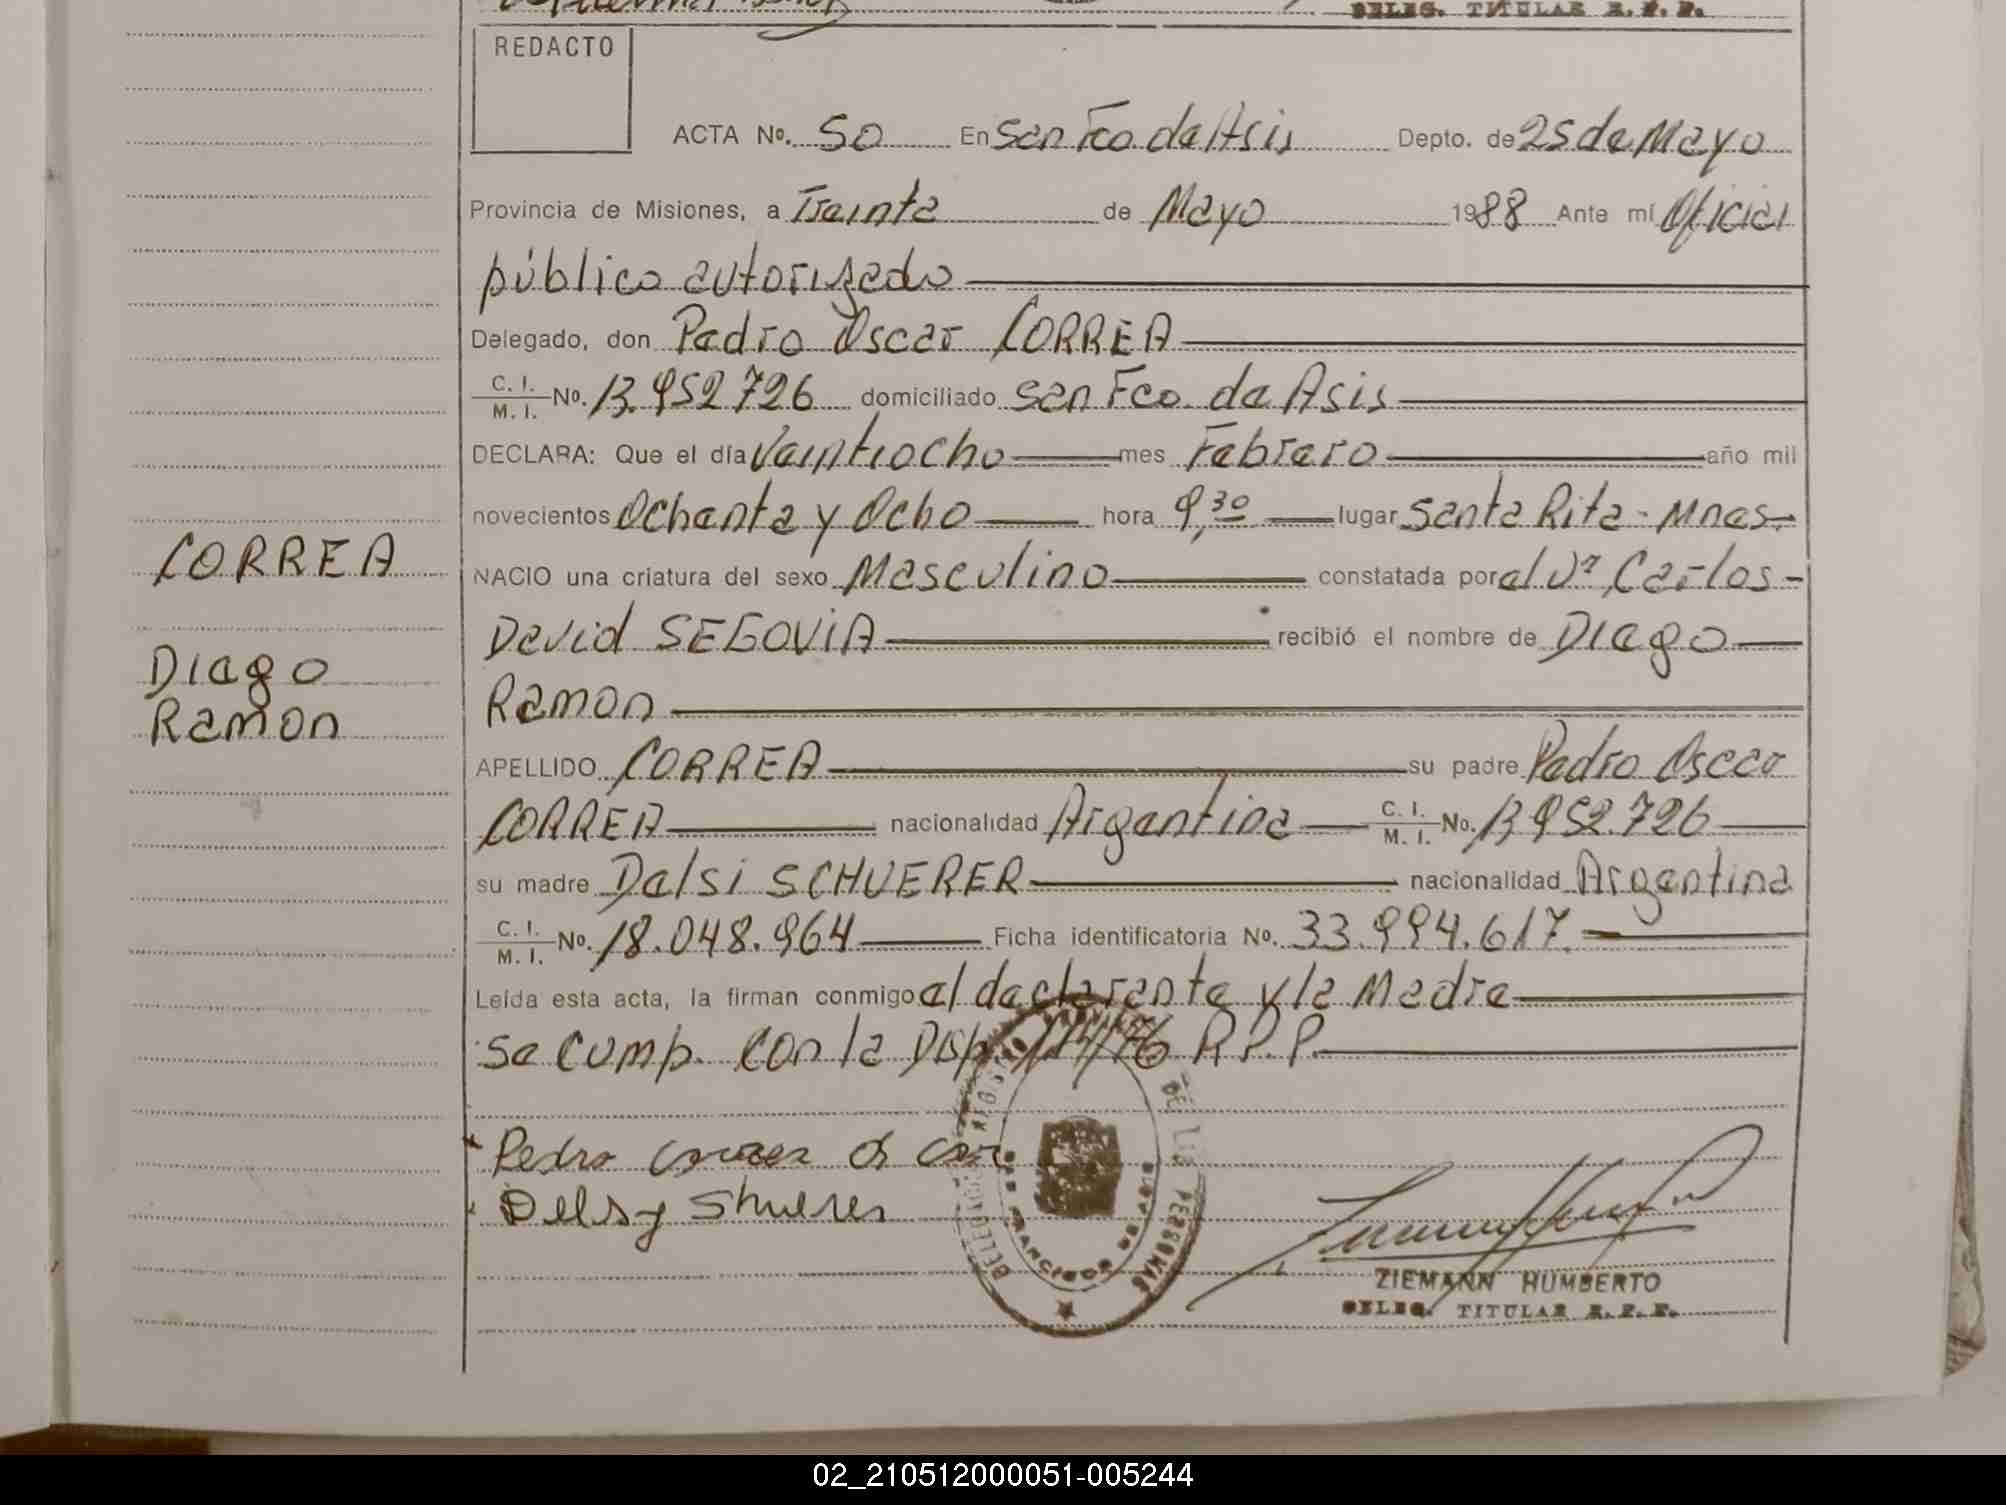 DELEG. TITULAR R. P. P.
REDACTO
ACTA Nº. 50 En San Fco. de Asis Depto. de 25 de Mayo
Provincia de Misiones, a Treinta de Mayo 1988 Ante mí Oficial
público autorizado
Delegado, don Pedro Oscar CORREA
C. I. / M. I. Nº. 13.952726 domiciliado San Fco. de Asis
DECLARA: Que el día Veintiocho mes Febrero año mil
novecientos Ochenta y Ocho hora 9,30 lugar Santa Rita - Mnes.
CORREA
NACIO una criatura del sexo Masculino constatada por el Dr Carlos
David SEGOVIA recibió el nombre de Diego
Diego
Ramon
Ramon
APELLIDO CORREA su padre Pedro Oscar
CORREA nacionalidad Argentina C. I. / M. I. Nº. 13.952.726
su madre Delsi SCHUERER nacionalidad Argentina
C. I. / M. I. Nº. 18.048.964 Ficha identificatoria Nº. 33.994.617.
Leída esta acta, la firman conmigo el declarante y la Madre
Se Cump. Con la Disp. /76 R.P.P.
Pedro correa Oscar
Delsy Shuerer
DE LAS PERSONAS
FRANCISCO DE ASIS
ZIEMANN HUMBERTO
DELEG. TITULAR R. P. P.
02_210512000051-005244